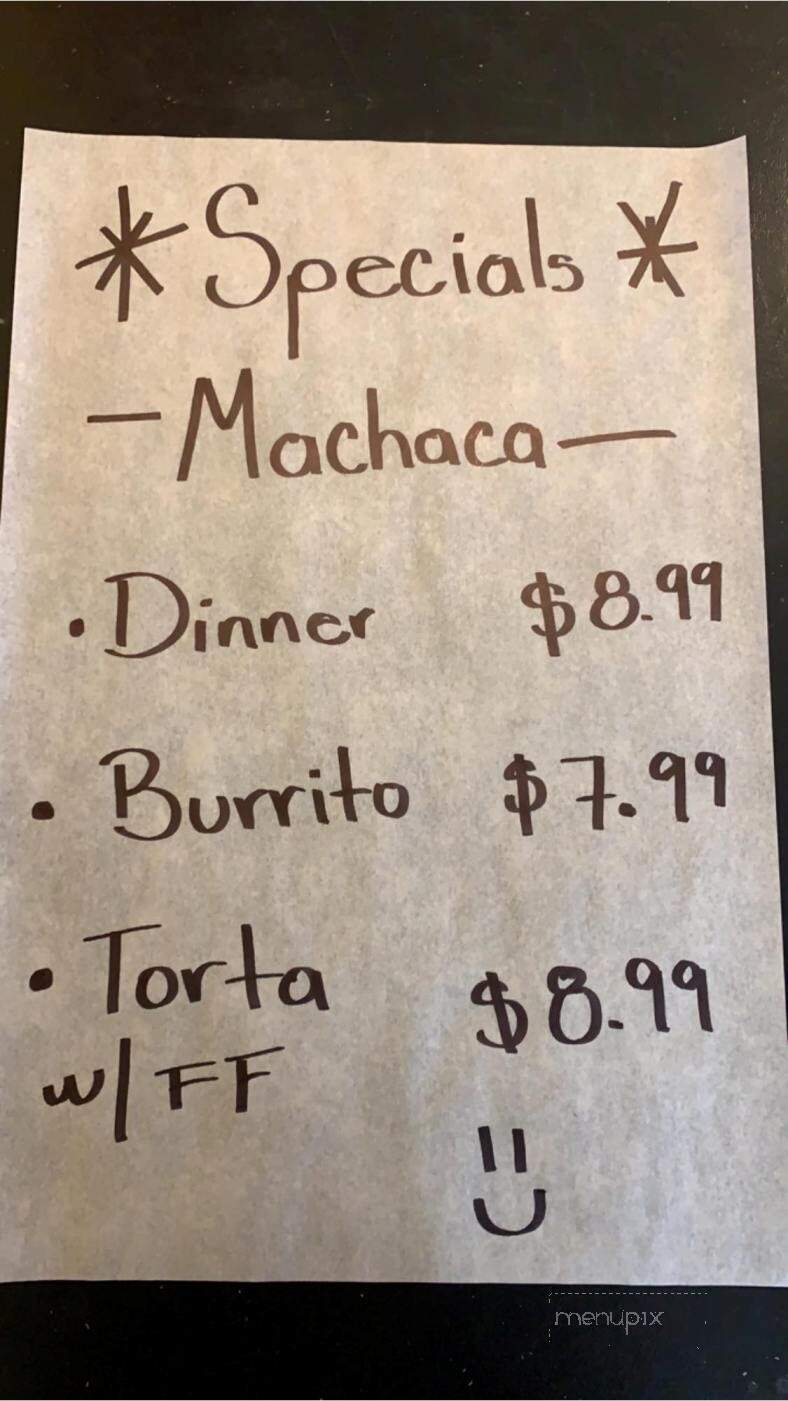 * Specials *
- Machaca -
• Dinner $8.99
• Burrito $7.99
• Torta $8.99
w/ FF
menupix